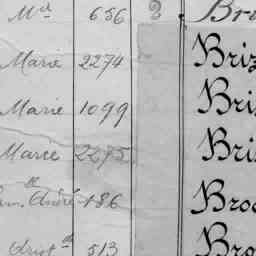 Md 656 2 Br
Marie 2274 Briz
Marie 1099 Bri
Marie 2275 Bri
André 186 Broc
513 Bro